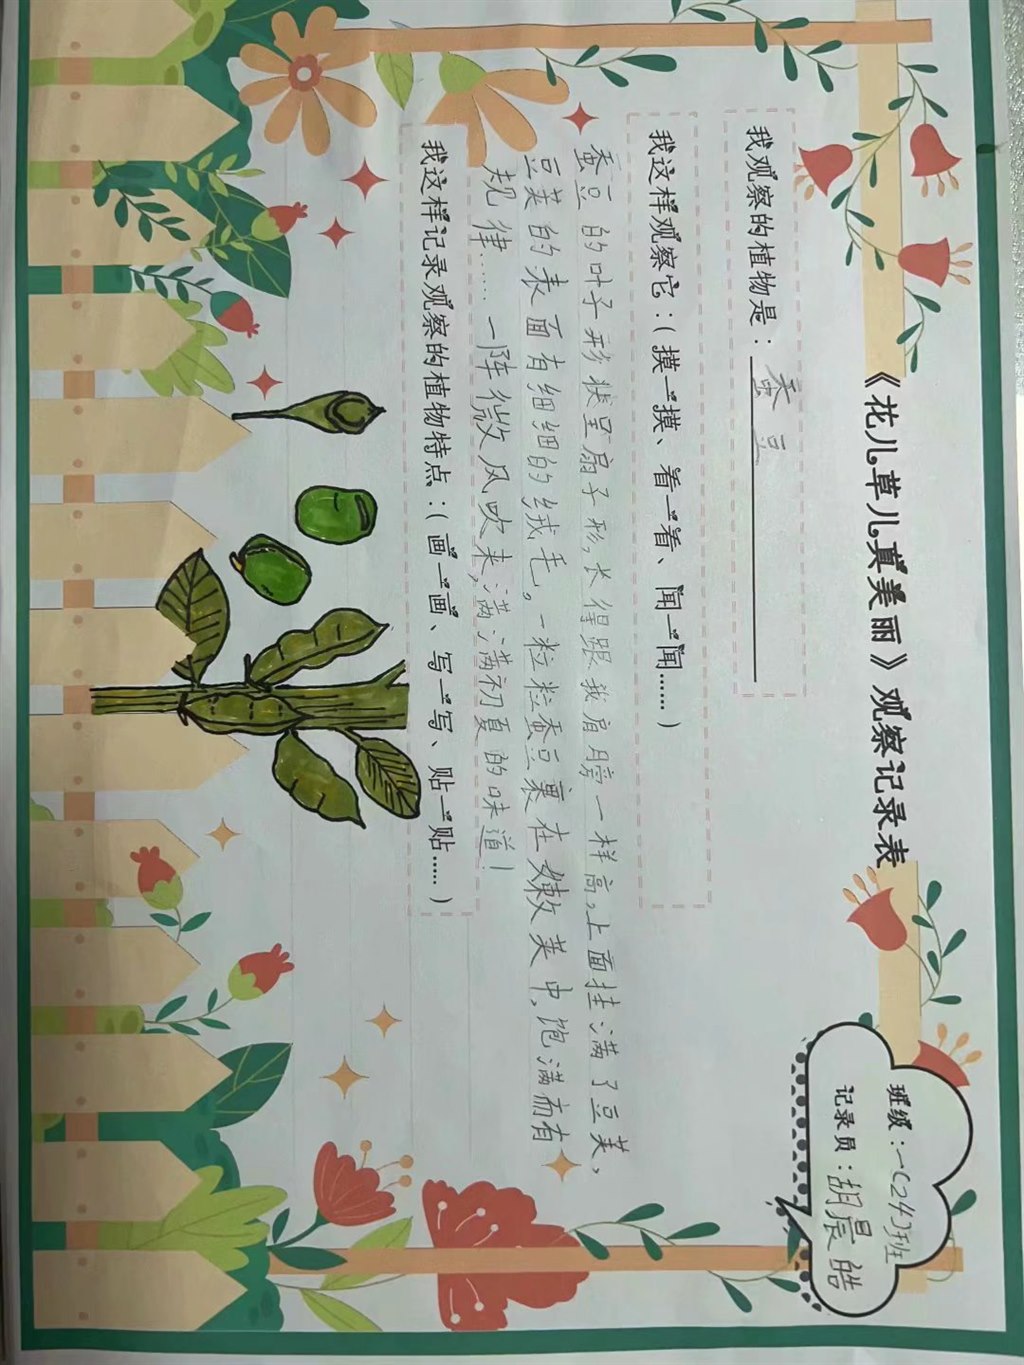 《花儿草儿真美丽》观察记录表
班级：一(24)班
记录员：胡晨皓
我观察的植物是：蚕豆
我这样观察它：(摸一摸、看一看、闻一闻……)
蚕豆的叶子形状呈扇子形，长得跟我肩膀一样高，上面挂满了豆荚，
豆荚的表面有细细的绒毛。一粒粒蚕豆裹在嫩荚中，饱满而有
规律……一阵微风吹来，满满初夏的味道！
我这样记录观察的植物特点：(画一画、写一写、贴一贴……)